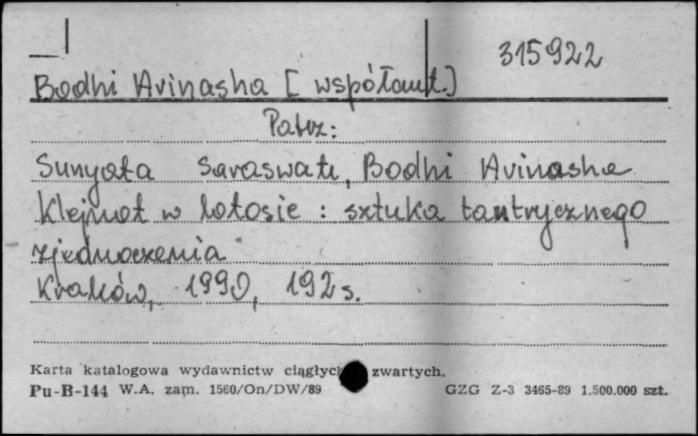 315922
Bodhi Avinasha [współaut.]
Patrz:
Sunyata Saraswati, Bodhi Avinasha
Klejnot w lotosie : sztuka tantrycznego
zjednoczenia
Kraków, 1990, 192 s.
Karta katalogowa wydawnictw ciągłych zwartych.
Pu-B-144 W.A. zam. 1560/On/DW/89 GZG Z-3 3465-89 1.500.000 szt.